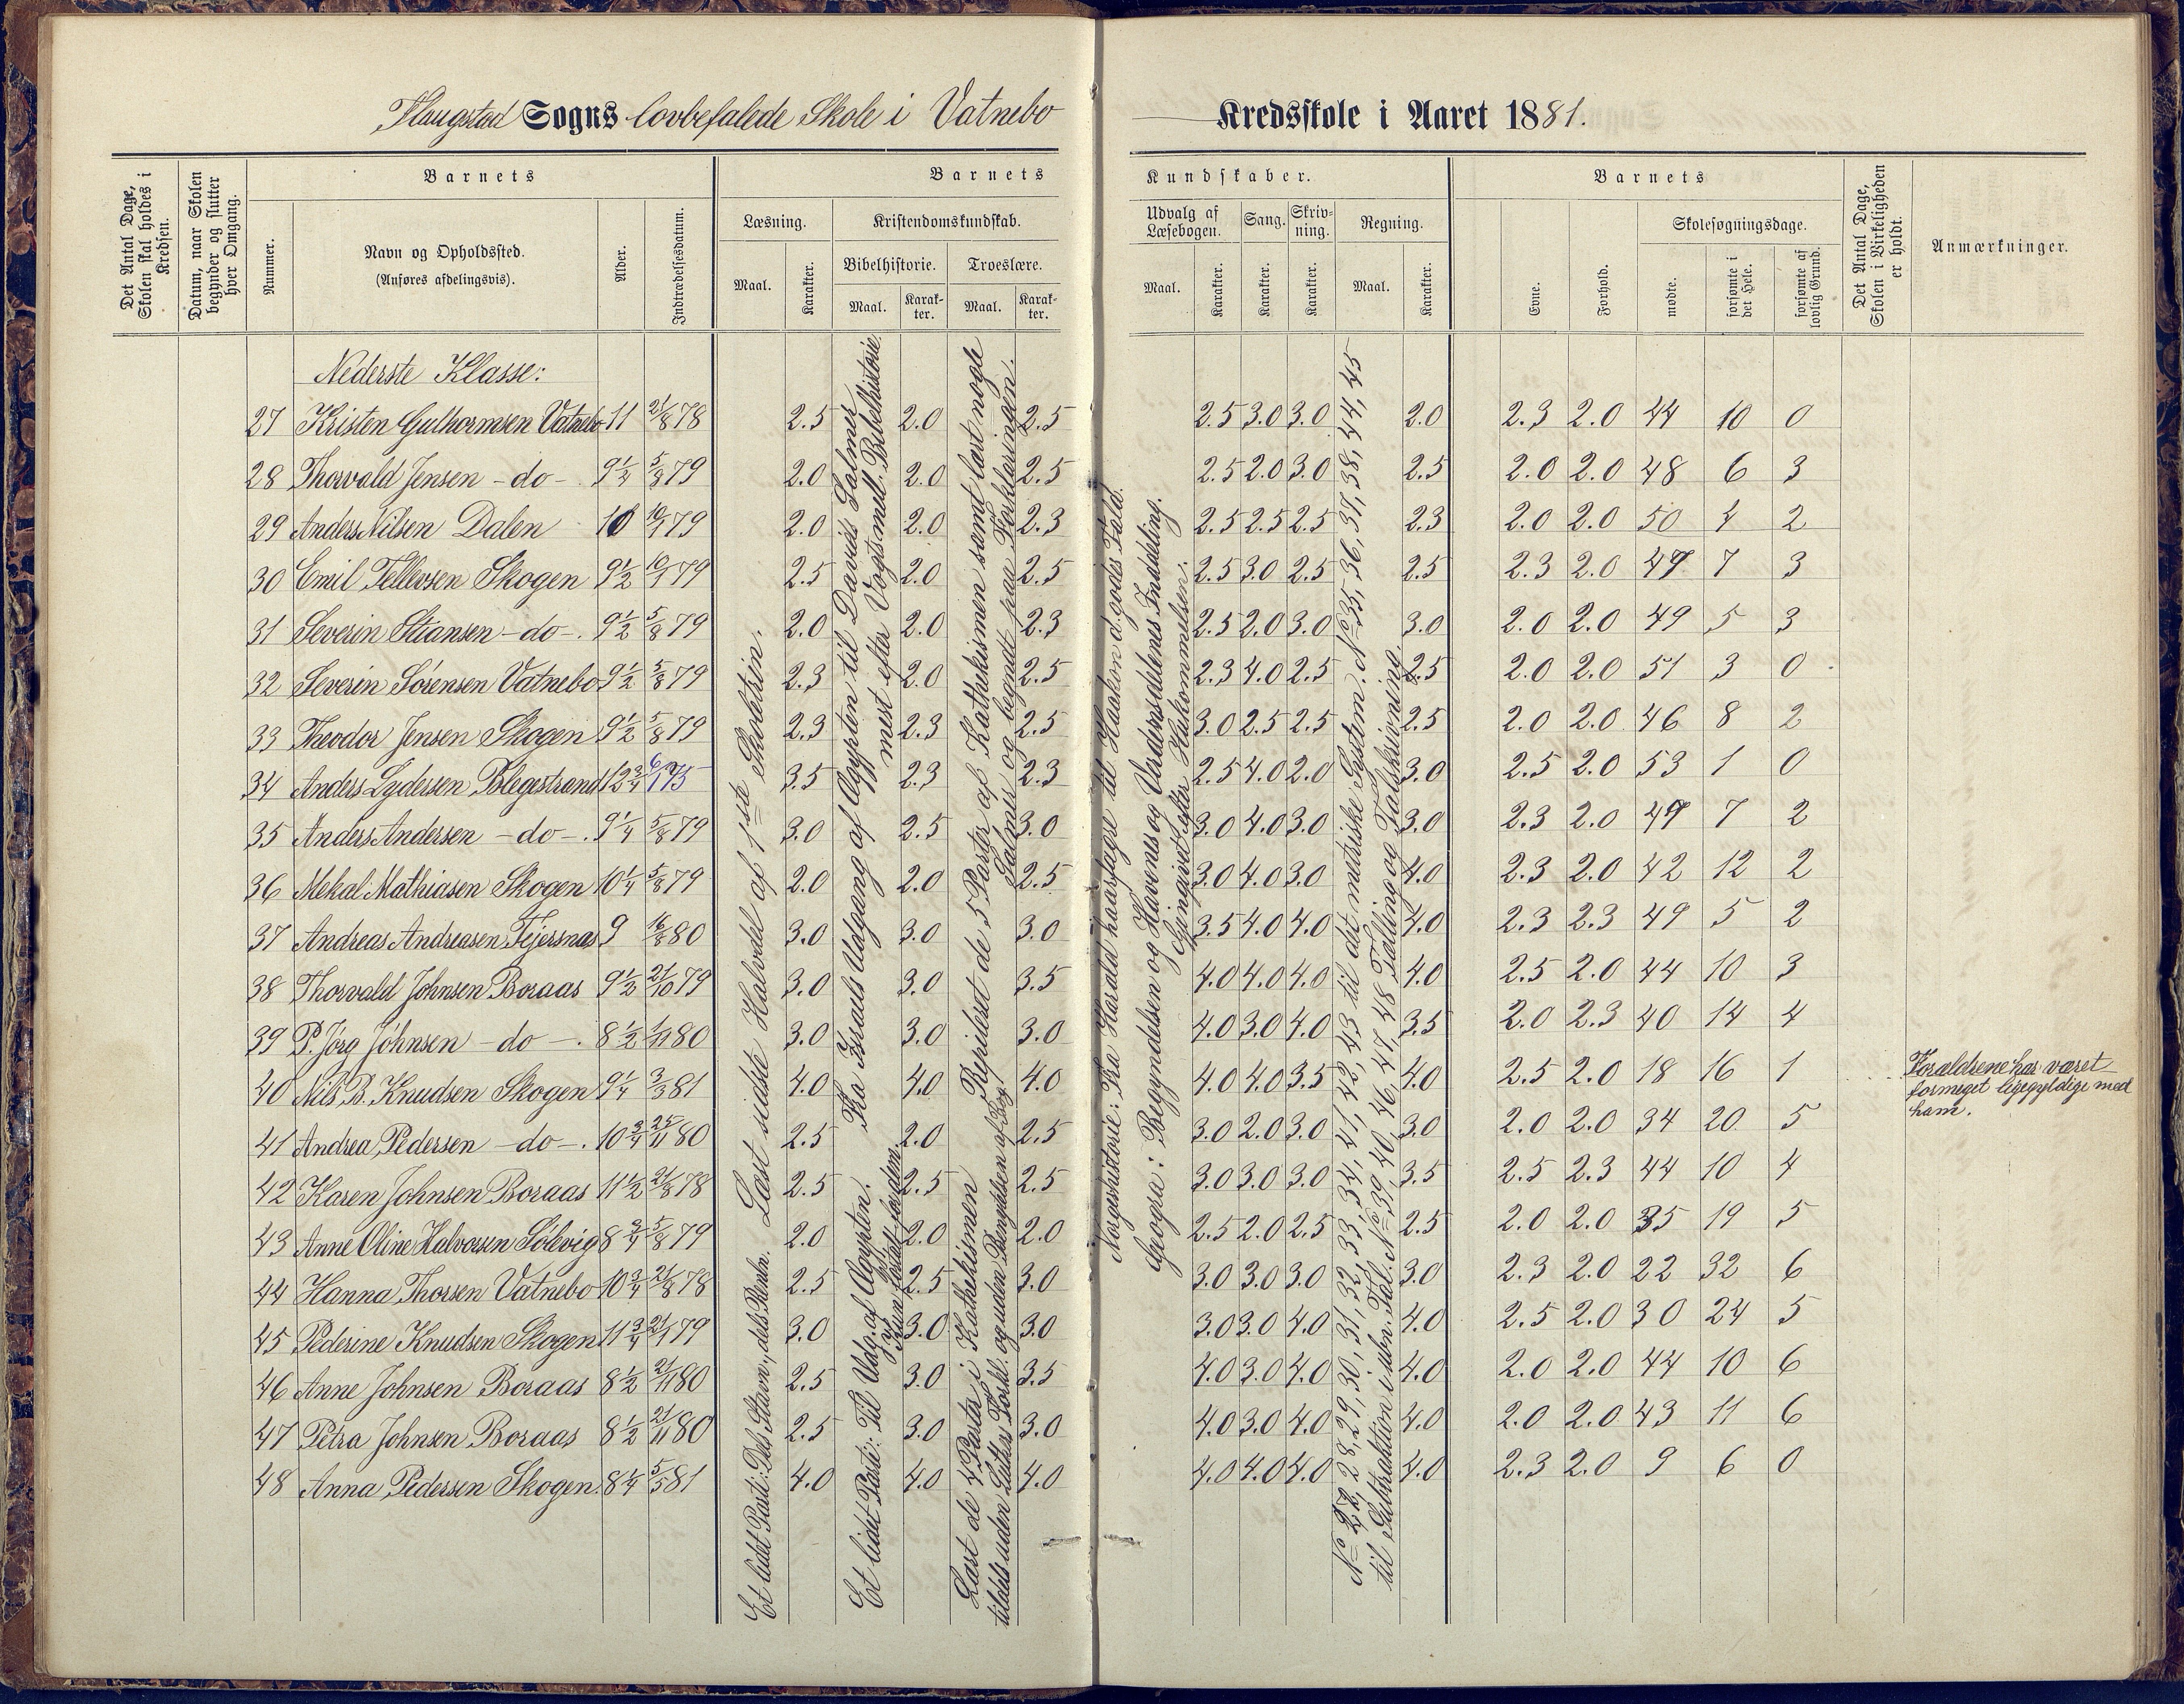 Flaugstad Sogns lovbefalede Skole i Vatnebo Kredsskole i Aaret 1881.
Det Antal Dage, Skolen skal holdes i Kredsen.
Datum, naar Skolen begynder og slutter hver Omgang.
Barnets
Nummer.
Navn og Opholdssted.
(Anføres afdelingsvis).
Alder.
Indtrædelsesdatum.
Barnets Kundskaber.
Læsning.
Maal.
Karakter.
Kristendomskundskab.
Bibelhistorie.
Maal.
Karak-ter.
Troeslære.
Maal.
Karak-ter.
Udvalg af Læsebogen.
Maal.
Karakter.
Sang.
Karakter.
Skriv-ning.
Karakter.
Regning.
Maal.
Karakter.
Barnets
Evne.
Forhold.
Skolesøgningsdage.
mødte.
forsømte i det Hele.
forsømte af lovlig Grund.
Det Antal Dage, Skolen i Virkeligheden er holdt.
Anmærkninger.
Nederste Klasse:
27 Kristen Guthormsen Vatnebo 11 21/8 78 2.5 2.0 2.5 2.5 3.0 3.0 2.0 2.3 2.0 44 10 0
28 Thorvald Jensen -do- 9 1/2 5/8 79 2.0 2.0 2.5 2.5 2.0 3.0 2.5 2.0 2.0 48 6 3
29 Anders Nilsen Dalen 10 10/1 79 2.0 2.0 2.3 2.5 2.5 2.5 2.3 2.0 2.0 50 4 2
30 Emil Tellevsen Skogen 9 1/2 10/1 79 2.5 2.0 2.5 2.5 3.0 2.5 2.5 2.3 2.0 47 7 3
31 Severin Stiansen -do-. 9 1/2 5/8 79 2.0 2.0 2.3 2.5 2.0 3.0 3.0 2.0 2.0 49 5 3
32 Severin Sørensen Vatnebo 9 1/2 5/8 79 2.3 2.0 2.5 2.3 4.0 2.5 2.5 2.0 2.0 51 3 0
33 Theodor Jensen Skogen 9 1/2 5/8 79 2.3 2.3 2.5 3.0 2.5 2.5 2.5 2.0 2.0 46 8 2
34 Anders Lydersen Blegestrand 12 3/4 6/1 75 3.5 2.3 2.3 2.5 4.0 2.0 3.0 2.5 2.0 53 1 0
35 Anders Andersen -do-. 9 1/4 5/8 79 3.0 2.5 3.0 3.0 4.0 3.0 3.0 2.3 2.0 47 7 2
36 Mekal Mathiasen Skogen 10 1/4 5/8 79 2.0 2.0 2.5 3.0 4.0 3.0 4.0 2.3 2.0 42 12 2
37 Andreas Andreasen Fejersnæs 9 16/8 80 3.0 3.0 3.0 3.5 4.0 4.0 4.0 2.3 2.3 49 5 2
38 Thorvald Johnsen Boraas 9 1/2 21/10 79 3.0 3.0 3.5 4.0 4.0 4.0 4.0 2.5 2.0 44 10 3
39 P. Jørg Johnsen -do-. 8 1/2 1/11 80 3.0 3.0 3.0 4.0 3.0 4.0 3.5 2.0 2.3 40 14 4
40 Nils B. Knudsen Skogen 9 1/4 3/3 81 4.0 4.0 4.0 4.0 4.0 3.5 4.0 2.5 2.0 18 16 1 Forældrene har været
formeget ligegyldige med
ham.
41 Andrea Pedersen -do-. 10 3/4 25/11 80 2.5 2.0 2.5 3.0 2.0 3.0 3.0 2.0 2.0 34 20 5
42 Karen Johnsen Boraas 11 1/2 21/8 78 2.5 2.5 2.5 3.0 3.0 3.0 3.5 2.5 2.3 44 10 4
43 Anne Oline Halvorsen Sølevig 8 3/4 5/8 79 2.0 2.0 2.0 2.5 2.0 2.5 2.5 2.0 2.0 35 19 5
44 Hanna Thorsen Vatnebo 10 3/4 21/8 78 2.5 2.5 3.0 3.0 3.0 3.0 3.0 2.3 2.0 22 32 6
45 Pederine Knudsen Skogen 11 3/4 21/1 79 3.0 3.0 3.0 3.0 3.0 4.0 4.0 2.5 2.0 30 24 5
46 Anne Johnsen Boraas 8 1/2 21/11 80 2.5 3.0 3.5 4.0 3.0 4.0 4.0 2.0 2.0 44 10 6
47 Petra Johnsen Boraas 8 1/2 21/11 80 2.5 3.0 3.0 4.0 3.0 4.0 4.0 2.0 2.0 43 11 6
48 Anna Pedersen Skogen 8 1/4 5/5 81 4.0 4.0 4.0 4.0 4.0 4.0 4.0 2.3 2.0 9 6 0
Læst sidste Halvdel af 1ste Skoletrin.
Et lidet Parti: Dels Stavn., dels Renlæ.
Fra Israels Udgang af Ægypten til Davids Salmer
mest efter Vogts mell. Bibelhistorie.
Et lidet Parti: Til Udg. af Ægypten.
Kun fortalt for dem
Repitert de 5 Parter af Kathekismen samt læst nogle
Salmer og begyndt paa Forklaringen.
Læst de 4 Parta i Kathekismen
tildels uden Luthers Forkl. og uden Benyttelsen af Bog
Norgeshistorie: Fra Harald haarfagre til Haakon d. godes Fald.
Geogra: Begyndelsen og Havenes og Verdensdelenes Inddeling.
Gjengivet efter Hukommelsen.
No 27, 28, 29, 30, 31, 32, 33, 34, 41, 42, 43 til det metriske System. No 35, 36, 37, 38, 44, 45
til Subtraktion i ubn. Tal. No 39, 40, 46, 47, 48 Tælling og Talskrivning.